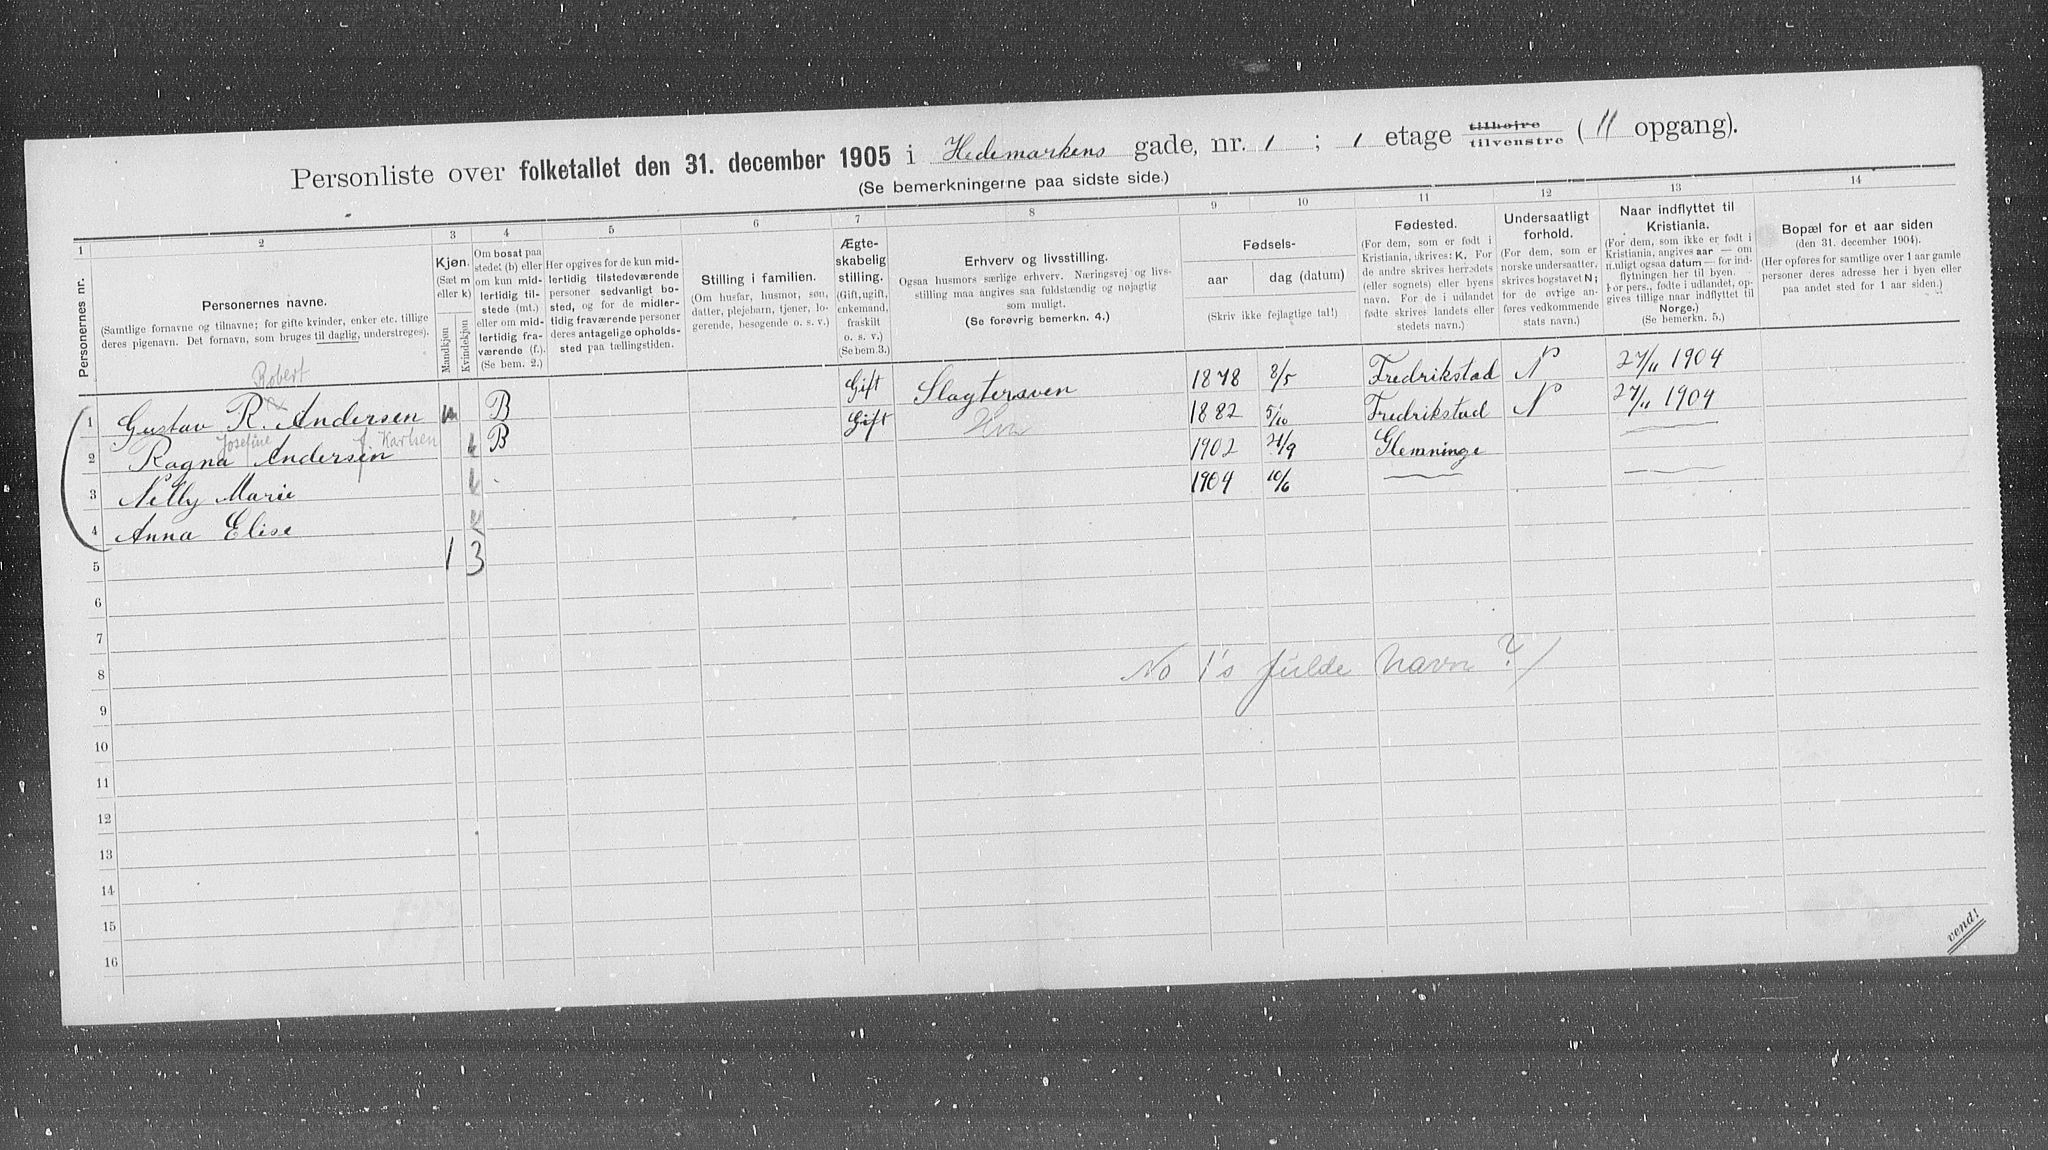 Personliste over folketallet den 31. december 1905 i Hedemarkens gade, nr. 1 ; 1 etage tilhøjre tilvenstre ( 11 opgang).
(Se bemerkningerne paa sidste side.)
1 2 3 4 5 6 7 8 9 10 11 12 13 14
Personernes nr.
Personernes navne.
(Samtlige fornavne og tilnavne; for gifte kvinder, enker etc. tillige
deres pigenavn. Det fornavn, som bruges til daglig, understreges).
Kjøn.
(Sæt m
eller k)
Mandkjøn
Kvindekjøn
Om bosat paa
stedet (b) eller
om kun mid-
lertidig til-
stede (mt.)
eller om mid-
lertidig fra-
værende (f.).
(Se bem. 2.)
Her opgives for de kun mid-
lertidig tilstedeværende
personer sedvanligt bo-
sted, og for de midler-
tidig fraværende personer
deres antagelige opholds-
sted paa tællingstiden.
Stilling i familien.
(Om husfar, husmor, søn,
datter, plejebarn, tjener, lo-
gerende, besøgende o. s. v.)
Ægte-
skabelig
stilling.
(Gift, ugift,
enkemand,
fraskilt
o. s. v.)
(Se bem. 3.)
Erhverv og livsstilling.
Ogsaa husmors særlige erhverv. Næringsvej og livs-
stilling maa angives saa fuldstændig og nøjagtig
som muligt.
(Se forøvrig bemerkn. 4.)
Fødsels-
aar dag (datum)
(Skriv ikke fejlagtige tal!)
Fødested.
(For dem, som er født i
Kristiania, skrives: K. For
de andre skrives herredets
(eller sognets) eller byens
navn. For de i udlandet
fødte skrives landets eller
stedets navn.)
Undersaatligt
forhold.
(For dem, som er
norske undersaatter,
skrives bogstavet N;
for de øvrige an-
føres vedkommende
stats navn.)
Naar indflyttet til
Kristiania.
(For dem, som ikke er født i
Kristiania, angives aar — om
muligt ogsaa datum — for ind-
flytningen her til byen.
For pers., fødte i udlandet, op-
gives tillige naar indflyttet til
Norge.)
(Se bemerkn. 5.)
Bopæl for et aar siden
(den 31. december 1904).
(Her opføres for samtlige over 1 aar gamle
personer deres adresse her i byen eller
paa andet sted for 1 aar siden.)
Robert
1 Gustav R. Andersen m B Gift Slagtersven 1878 8/5 Fredrikstad N 27/11 1904
Josefine f. Karlsen
2 Ragna Andersen k B Gift 1882 5/10 Fredrikstad N 27/11 1904
3 Nelly Marie k 1902 21/9 Glemminge
4 Anna Elise k 1904 10/6
5 1 3
6
7
8 No 1's fulde navn?/
9
10
11
12
13
14
15
16
vend!